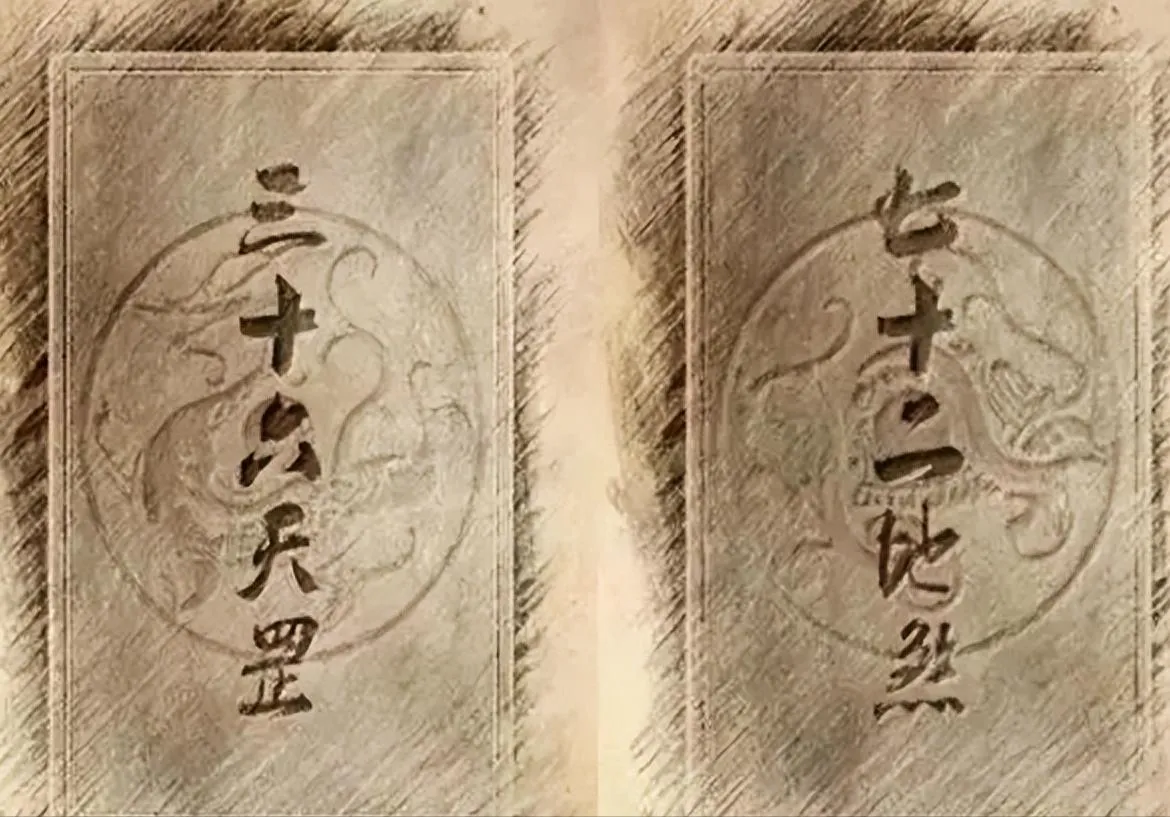 三十六天罡
七十二地煞